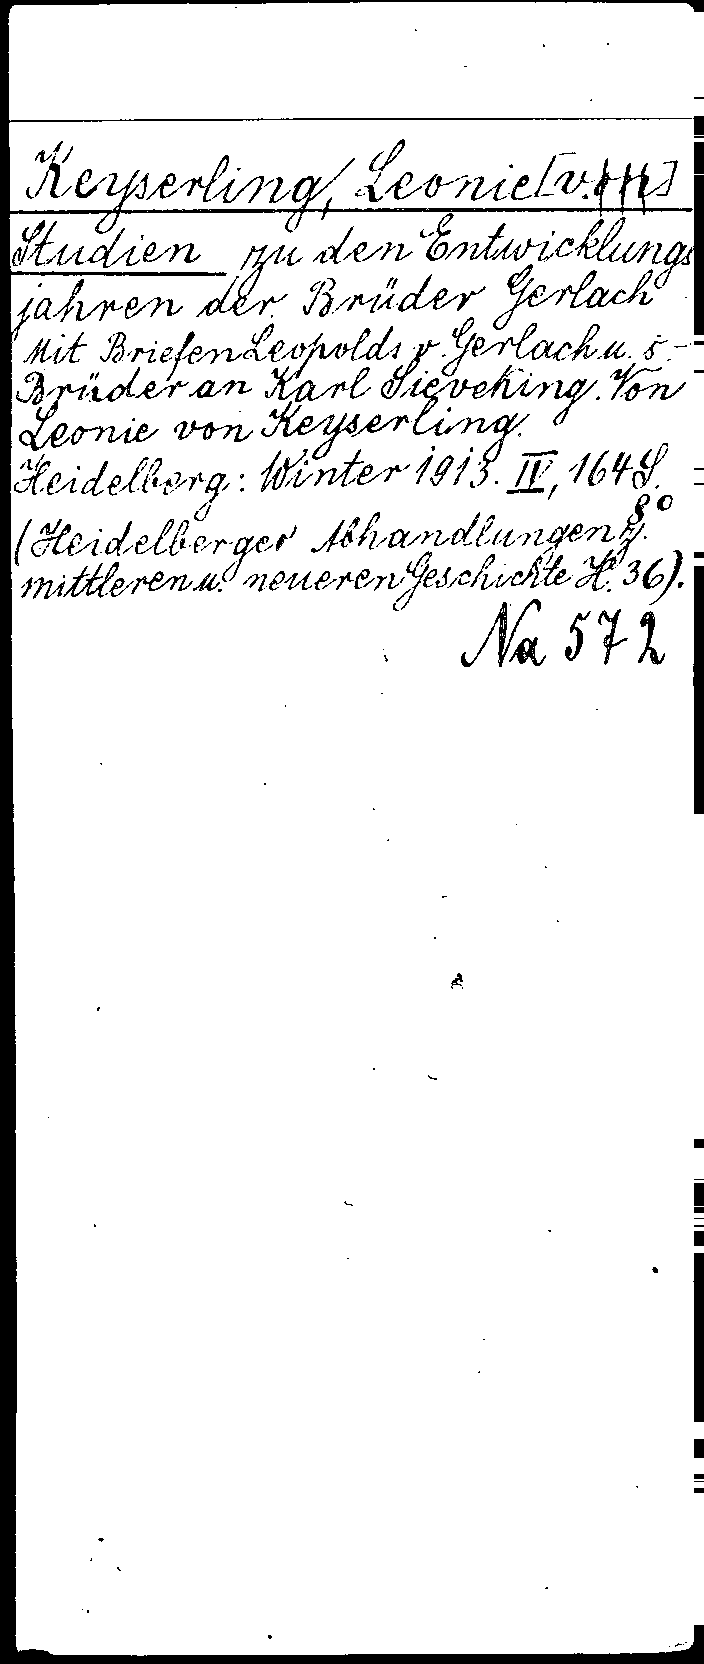 Keyserling, Leonie [v.]
Studien zu den Entwicklungs
jahren der Brüder Gerlach
Mit Briefen Leopolds v. Gerlach u. s.
Brüder an Karl Sieveking. Von
Leonie von Keyserling.
Heidelberg: Winter 1913. IV, 164 S.
8°
(Heidelberger Abhandlungen z.
mittleren u. neueren Geschichte H. 36).
Na 572